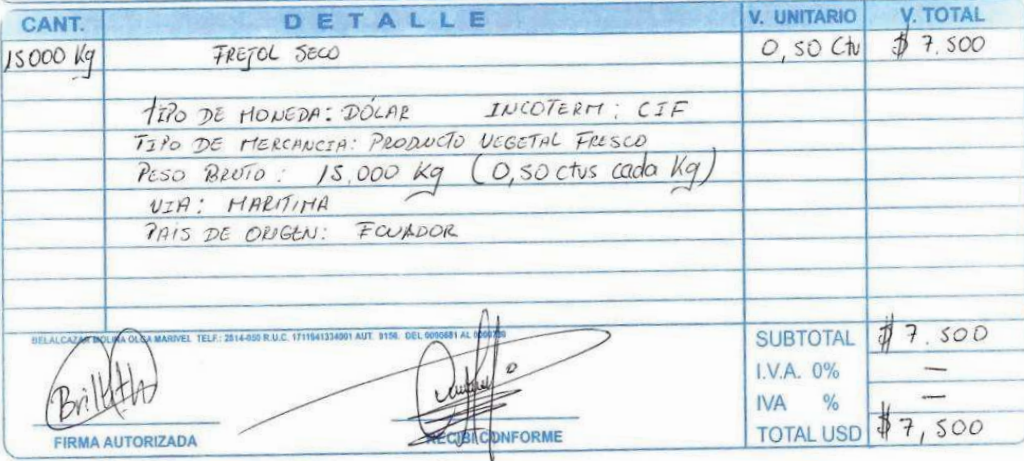 CANT. DETALLE V. UNITARIO V. TOTAL
15000 Kg FREJOL SECO 0,50 Ctv $ 7.500
TIPO DE MONEDA: DÓLAR INCOTERM: CIF
TIPO DE MERCANCIA: PRODUCTO VEGETAL FRESCO
PESO BRUTO: 15.000 Kg (0,50 ctvs cada Kg)
VIA: MARITIMA
PAÍS DE ORIGEN: ECUADOR
BELALCAZAR MOLINA OLGA MARIVEL TELF.: 2814-050 R.U.C. 1711941334001 AUT. 9156 DEL 0000681 AL
SUBTOTAL $ 7.500
I.V.A. 0% —
IVA % —
FIRMA AUTORIZADA RECIBI CONFORME TOTAL USD $ 7,500